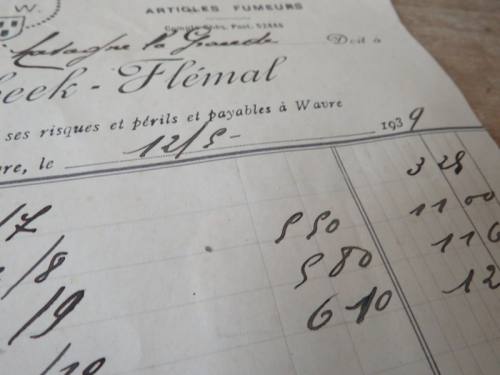 W.
ARTICLES FUMEURS
Compte Chèq. Post. 52445
Matagne la Grande Doit à
eek - Flémal
ses risques et périls et payables à Wavre
re, le 12/5- 1939
3 28
/7 550 11 00
/8 580 116
/9 610 12
/10